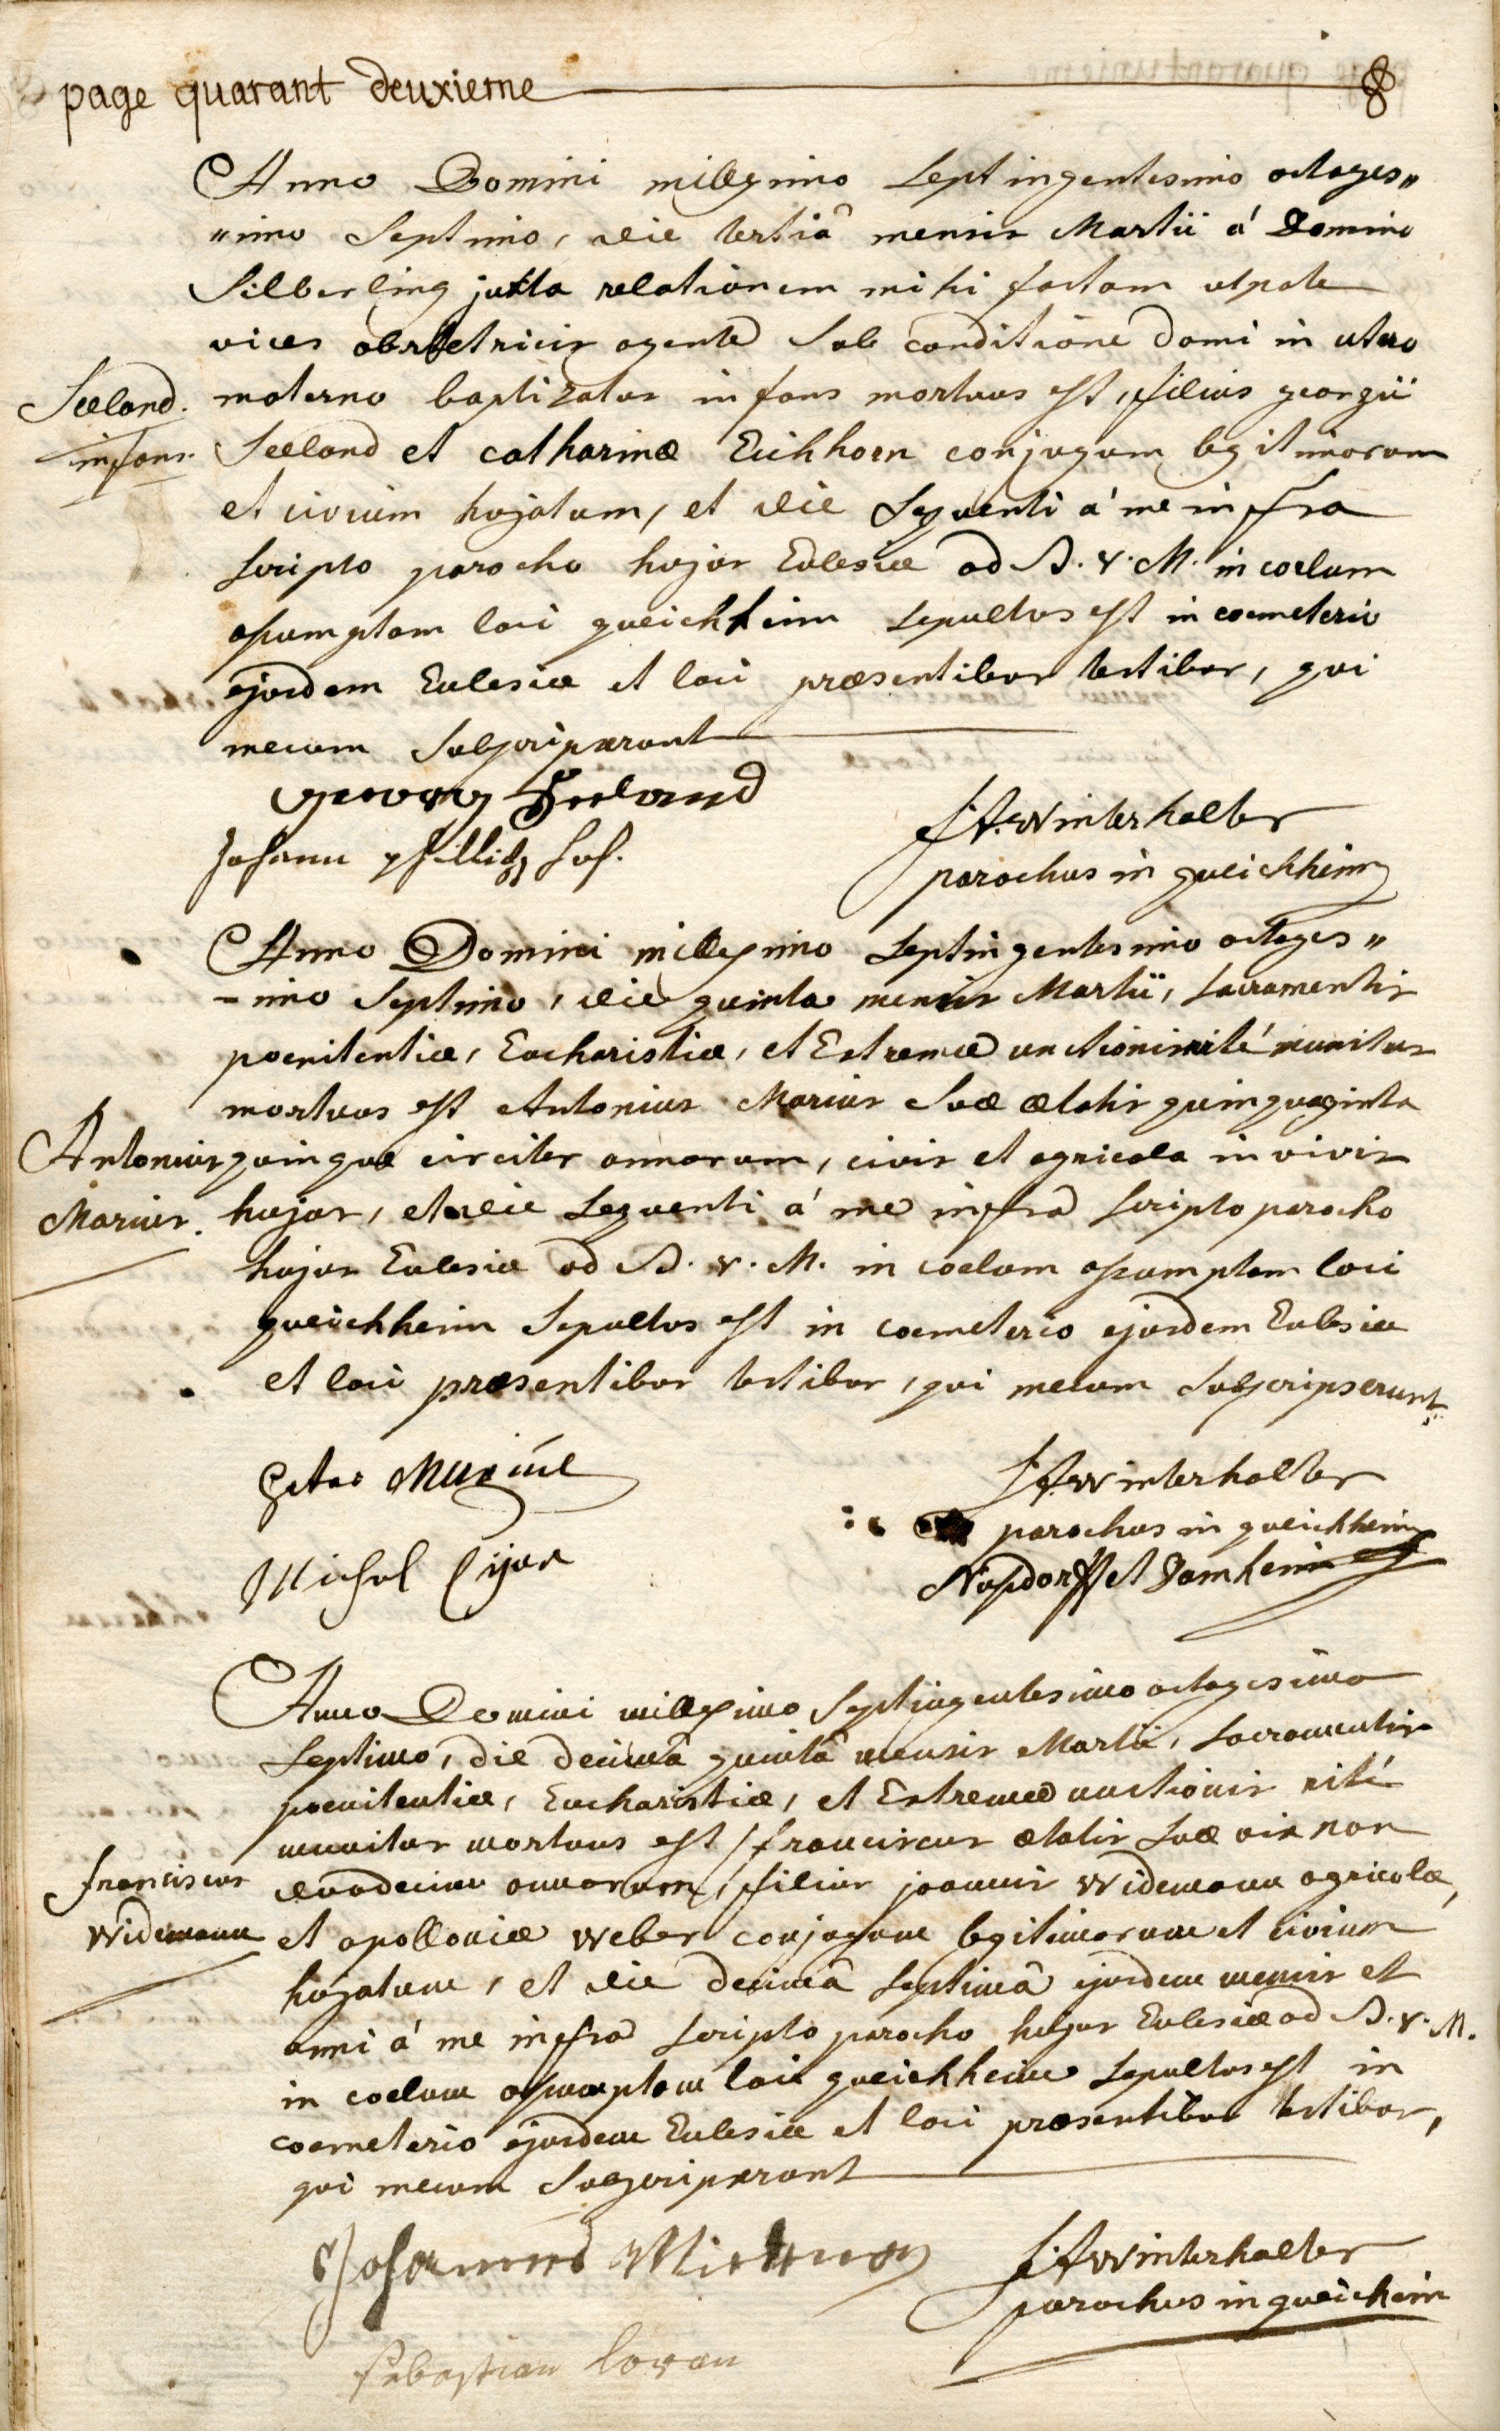 page quarant deuxieme
Anno Domini millesimo septingentesimo octoges„
„imo septimo, die tertiâ mensis Martii á Domino
Silberling juxta relationem mihi factam utpote
vices obstetricis agente sub conditione domi in utero
Seeland. materno baptizatus infans mortuus est, filius georgii
infans. Seeland et catharinæ Eichhorn conjugum legitimorum
et civium hujatum, et die sequenti á me infra
scripto parocho hujus Ecclesiæ ad B. V. M. in coelum
assumptam loci queichheim sepultus est in coemeterio
ejusdem Ecclesiæ et loci præsentibus testibus, qui
mecum subscripserunt
georg Seeland
Johann Phillipp
J.A. Winterhalter
parochus in queichheim
Anno Domini millesimo septingentesimo octoges„
-imo septimo, die quinta mensis Martii, sacramentis
poenitentiæ, Eucharistiæ, et Extremæ unctionis rité munitus
mortuus est Antonius Marius suæ ætatis quinquaginta
Antonius quinque circiter annorum, civis et agricola in vivis
Marius. hujus, et die sequenti á me infra scripto parocho
hujus Ecclesiæ ad B. V. M. in coelum assumptam loci
queichheim sepultus est in coemeterio ejusdem Ecclesiæ
et loci præsentibus testibus, qui mecum subscripserunt
Peter
J A Winterhalter
parochus in queichheim
Michel
Nusdorff et Damheim
Anno Domini millesimo septingentesimo octogesimo
septimo, die decimâ quintâ mensis Martii, sacramentis
poenitentiæ, Eucharistiæ, et Extremæ unctionis rité
munitus mortuus est franciscus ætatis suæ vix non
franciscus duodecim annorum, filius joannis Widemann agricolæ,
Widemann et apolloniæ Weber conjugum legitimorum et civium
hujatum, et die decimâ septimâ ejusdem mensis et
anni á me infra scripto parocho hujus Ecclesiæ ad B. V. M.
in coelum assumptam loci queichheim sepultus est in
coemeterio ejusdem Ecclesiæ et loci præsentibus testibus,
qui mecum subscripserunt
Johannes
J A Winterhalter
parochus in queicheim
sebastian